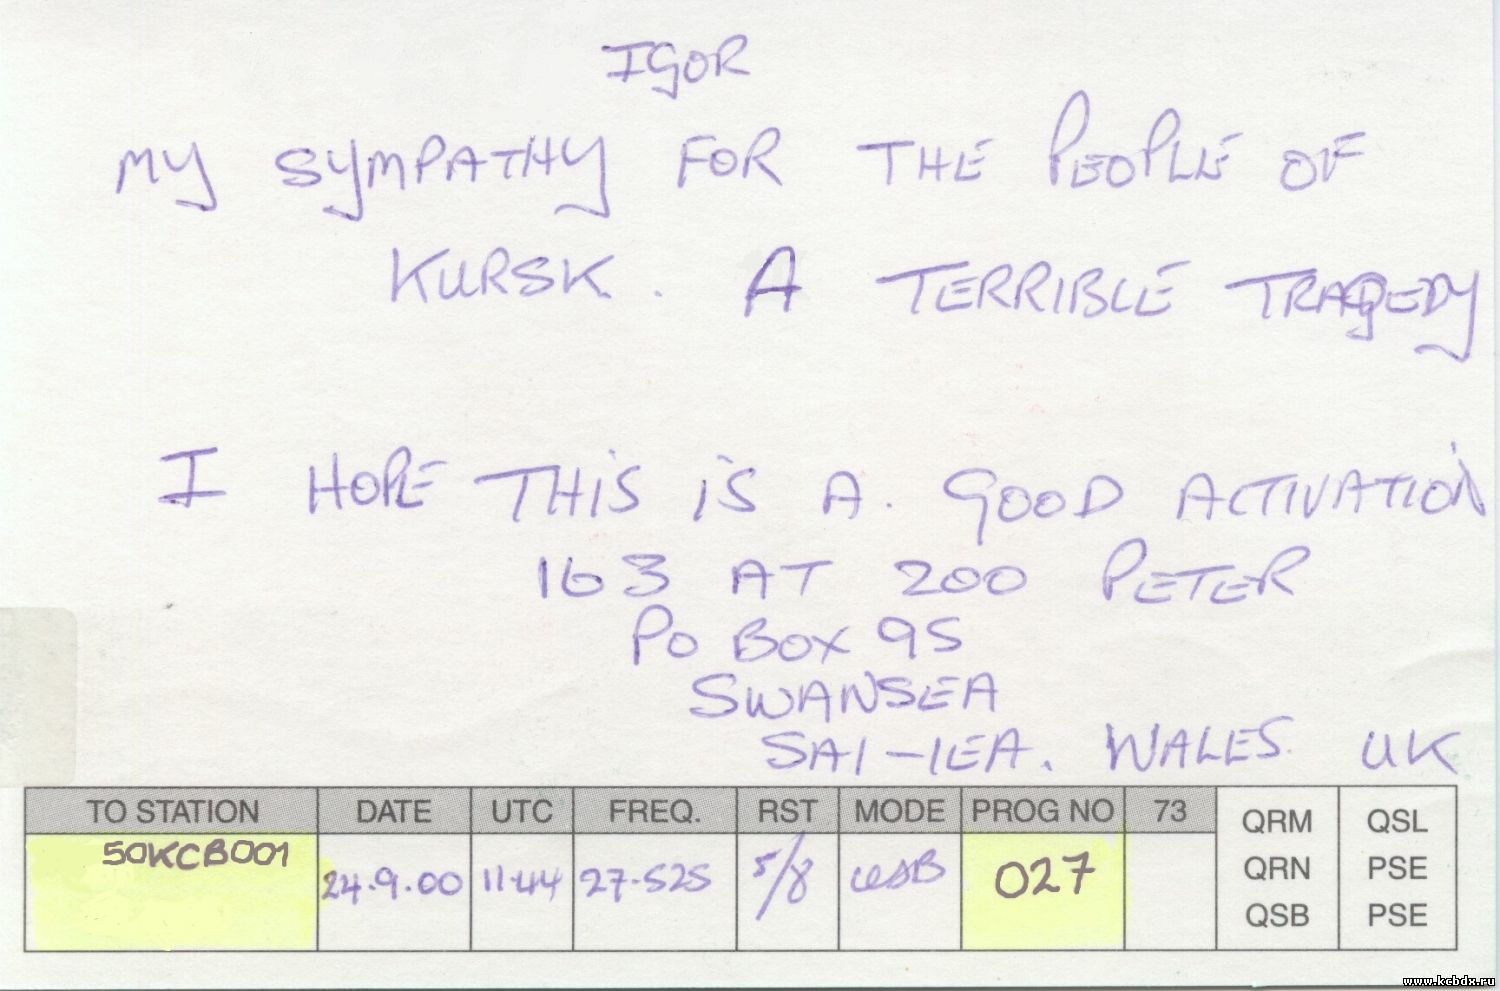 IGOR
MY SYMPATHY FOR THE PEOPLE OF
KURSK. A TERRIBLE TRAGEDY
I HOPE THIS IS A. GOOD ACTIVATION
163 AT 200 PETER
PO BOX 95
SWANSEA
SA1-1EA. WALES. UK
TO STATION DATE UTC FREQ. RST MODE PROG NO 73 QRM QSL
50KCB001 24.9.00 11.44 27.525 5/8 USB 027 QRN PSE
QSB PSE
www.kcbdx.ru